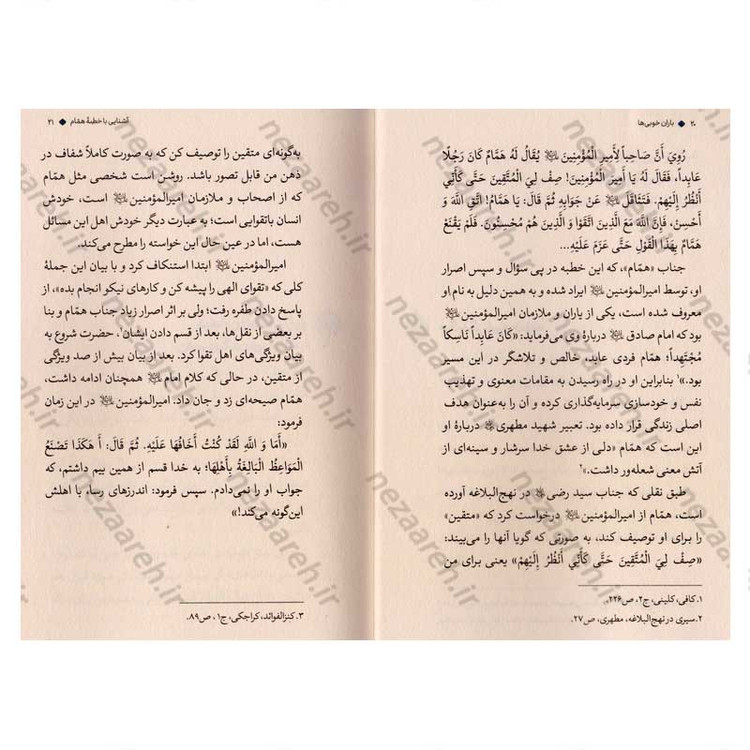 ۲۰ ◆ باران خوبی‌ها
رُوِيَ أَنَّ صَاحِباً لِأَمِيرِ الْمُؤْمِنِينَ ﷺ يُقَالُ لَهُ هَمَّامٌ كَانَ رَجُلًا
عَابِداً، فَقَالَ لَهُ يَا أَمِيرَ الْمُؤْمِنِينَ! صِفْ لِيَ الْمُتَّقِينَ حَتَّى كَأَنِّي
أَنْظُرُ إِلَيْهِمْ. فَتَثَاقَلَ ﷺ عَنْ جَوَابِهِ ثُمَّ قَالَ: يَا هَمَّامُ! اتَّقِ اللَّهَ وَ
أَحْسِنْ، فَإِنَّ اللَّهَ مَعَ الَّذِينَ اتَّقَوْا وَ الَّذِينَ هُمْ مُحْسِنُونَ. فَلَمْ يَقْنَعْ
هَمَّامٌ بِهَذَا الْقَوْلِ حَتَّى عَزَمَ عَلَيْهِ...
جناب «همّام»، که این خطبه در پی سؤال و سپس اصرار
او، توسط امیرالمؤمنین ایراد شده و به همین دلیل به نام او
معروف شده است، یکی از یاران و ملازمان امیرالمؤمنین
بود که امام صادق دربارهٔ وی می‌فرماید: «كَانَ عَابِداً نَاسِكاً
مُجْتَهِداً؛ همّام فردی عابد، خالص و تلاشگر در این مسیر
بود.»۱ بنابراین او در راه رسیدن به مقامات معنوی و تهذیب
نفس و خودسازی سرمایه‌گذاری کرده و آن را به‌عنوان هدف
اصلی زندگی قرار داده بود. تعبیر شهید مطهری دربارهٔ او
این است که همّام «دلی از عشق خدا سرشار و سینه‌ای از
آتش معنی شعله‌ور داشت.»۲
طبق نقلی که جناب سید رضی در نهج‌البلاغه آورده
است، همّام از امیرالمؤمنین درخواست کرد که «متقین»
را برای او توصیف کند، به صورتی که گویا آنها را می‌بیند:
«صِفْ لِيَ الْمُتَّقِينَ حَتَّى كَأَنِّي أَنْظُرُ إِلَيْهِمْ» یعنی برای من
۱. کافی، کلینی، ج۲، ص۲۲۶.
۲. سیری در نهج‌البلاغه، مطهری، ص۲۷.
آشنایی با خطبهٔ همّام ◆ ۲۱
به‌گونه‌ای متقین را توصیف کن که به صورت کاملاً شفاف در
ذهن من قابل تصور باشد. روشن است شخصی مثل همّام
که از اصحاب و ملازمان امیرالمؤمنین است، خودش
انسان باتقوایی است؛ به عبارت دیگر خودش اهل این مسائل
هست، اما در عین حال این خواسته را مطرح می‌کند.
امیرالمؤمنین ابتدا استنکاف کرد و با بیان این جملهٔ
کلی که «تقوای الهی را پیشه کن و کارهای نیکو انجام بده»، از
پاسخ دادن طفره رفت؛ ولی بر اثر اصرار زیاد جناب همّام و بنا
بر بعضی از نقل‌ها، بعد از قسم دادن ایشان۳، حضرت شروع به
بیان ویژگی‌های اهل تقوا کرد. بعد از بیان بیش از صد ویژگی
از متقین، در حالی که کلام امام همچنان ادامه داشت،
همّام صیحه‌ای زد و جان داد. امیرالمؤمنین در این زمان
فرمود:
«أَمَا وَ اللَّهِ لَقَدْ كُنْتُ أَخَافُهَا عَلَيْهِ. ثُمَّ قَالَ: أَ هَكَذَا تَصْنَعُ
الْمَوَاعِظُ الْبَالِغَةُ بِأَهْلِهَا؛ به خدا قسم از همین بیم داشتم، که
جواب او را نمی‌دادم. سپس فرمود: اندرزهای رسا، با اهلش
این‌گونه می‌کند!»
۳. کنزالفوائد، کراجکی، ج۱، ص۸۹.
nezaareh.ir